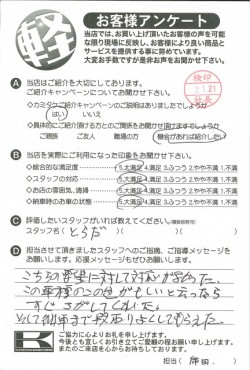 軽
お客様アンケート
当店では、お買い上げ頂いたお客様の声を可能
な限り現場に反映し、お客様により良い商品と
サービスを提供する事に努めています。
大変お手数ですが是非お声をお聞かせ下さい。
検印
2.1.21
A 当店はご紹介を大切にしております。
ご紹介キャンペーンについてお聞かせ下さい。
◇カミタケご紹介キャンペーンのご説明はありましたでしょうか
はい いいえ
◇具体的にご紹介頂ける方とのご関係をお聞かせ頂けますでしょうか
ご親族 ご友人 職場の方 機会があれば紹介したい
B 当店を実際にご利用になった印象をお聞かせ下さい。
◇総合的な満足度 5.大満足 4.満足 3.ふつう 2.やや不満 1.不満
◇スタッフの対応 5.大満足 4.満足 3.ふつう 2.やや不満 1.不満
◇お店の雰囲気、清掃 5.大満足 4.満足 3.ふつう 2.やや不満 1.不満
◇納車時のお車の状態 5.大満足 4.満足 3.ふつう 2.やや不満 1.不満
C 評価したいスタッフがいれば教えてください。(複数回答可)
スタッフ名( とくだ )( )( )
D 担当させて頂きましたスタッフへのご指摘、ご指導メッセージを
お願いします。応援メッセージもぜひお願いします。
こちらの要望に対して対応が早かった。
この車種のこの色がほしいと言ったら
すぐさがしてくれた。
そして納車まで段取りをしてもらえた。
K
ご協力に心よりお礼を申し上げます。
今後とも宜しくお引き立てご愛顧の程お願い申し上げます。
またのご来店を心からお待ちしております。
担当( 徳田 )